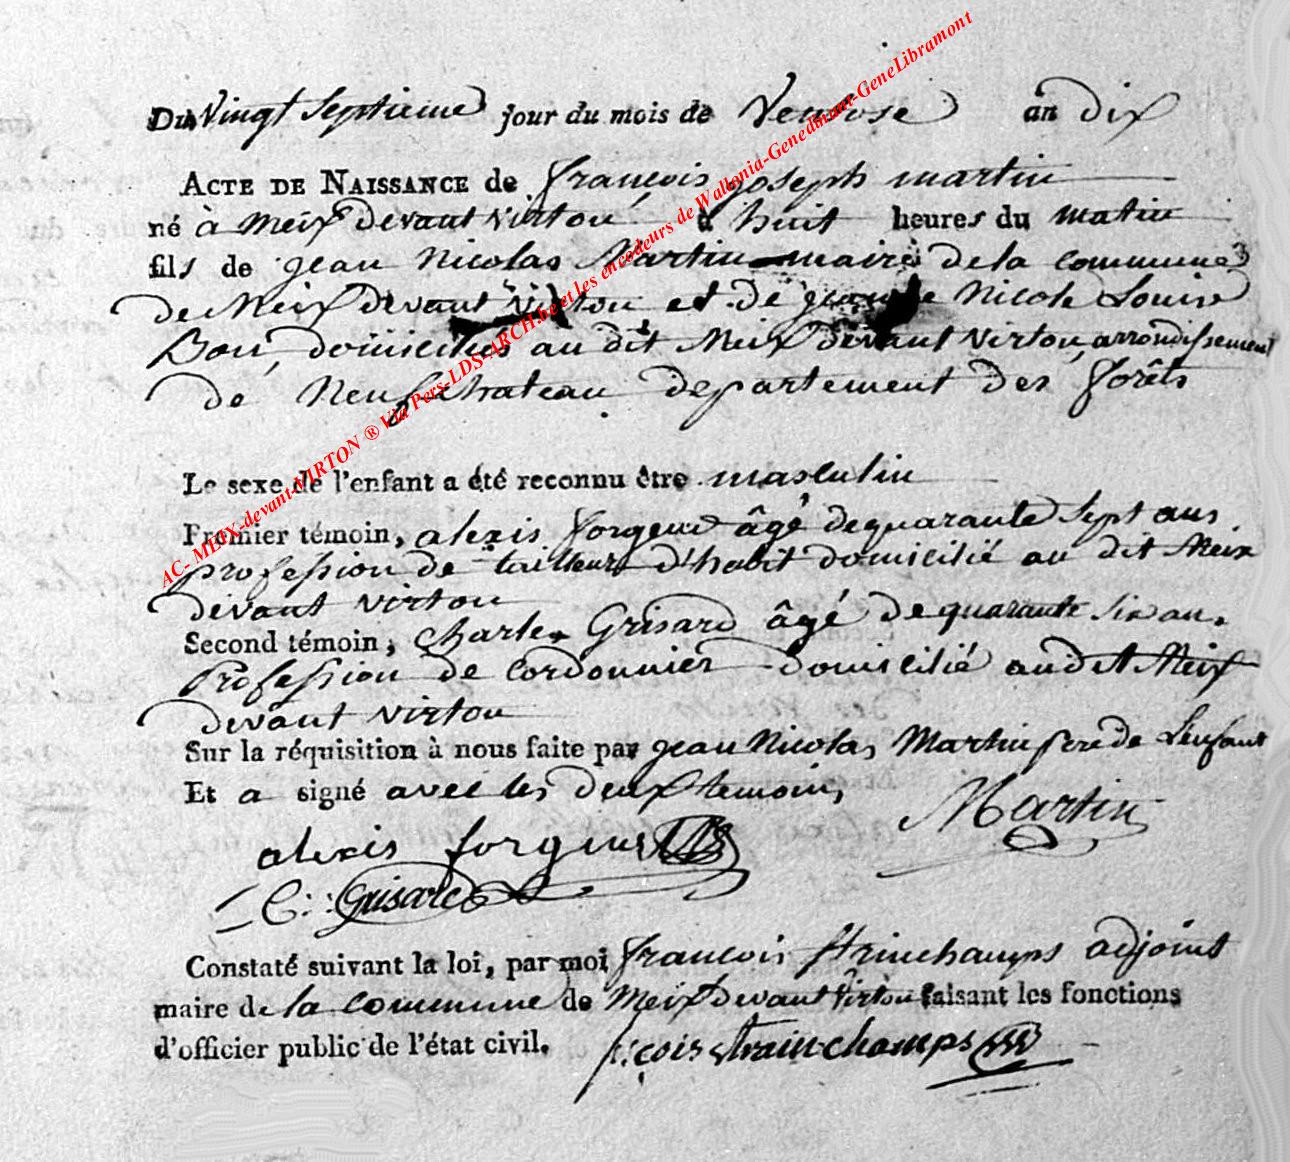 Du Vingt Septieme jour du mois de Ventose an dix
ACTE DE NAISSANCE de françois joseph martin
né à Meix devant virton à huit heures du matin
fils de jean Nicolas Martin maire de la commune
de Meix devant virton et de Nicole Louise
Bon domiciliés au dit Meix devant virton arrondissement
de Neufchateau departement des forêts
Le sexe de l'enfant a été reconnu être masculin
Premier témoin, alexis forgeur âgé de quarante sept ans
profession de tailleur d'habit domicilié au dit Meix
devant virton
Second témoin, Charles Grisard âgé de quarante six ans
Profession de cordonnier domicilié au dit Meix
devant virton
Sur la réquisition à nous faite par jean Nicolas Martin pere de L'enfant
Et a signé avec les deux temoins
Martin
alexis forgeur
C: Grisard
Constaté suivant la loi, par moi francois strinchamps adjoint
maire de la commune de Meix devant virton faisant les fonctions
d'officier public de l'état civil.
f:çois strainchamps
AC- MEIX-devant-VIRTON ® Via Pers-LDS-ARCH.be et les encodeurs de Wallonia-Genedinant-GeneLibramont